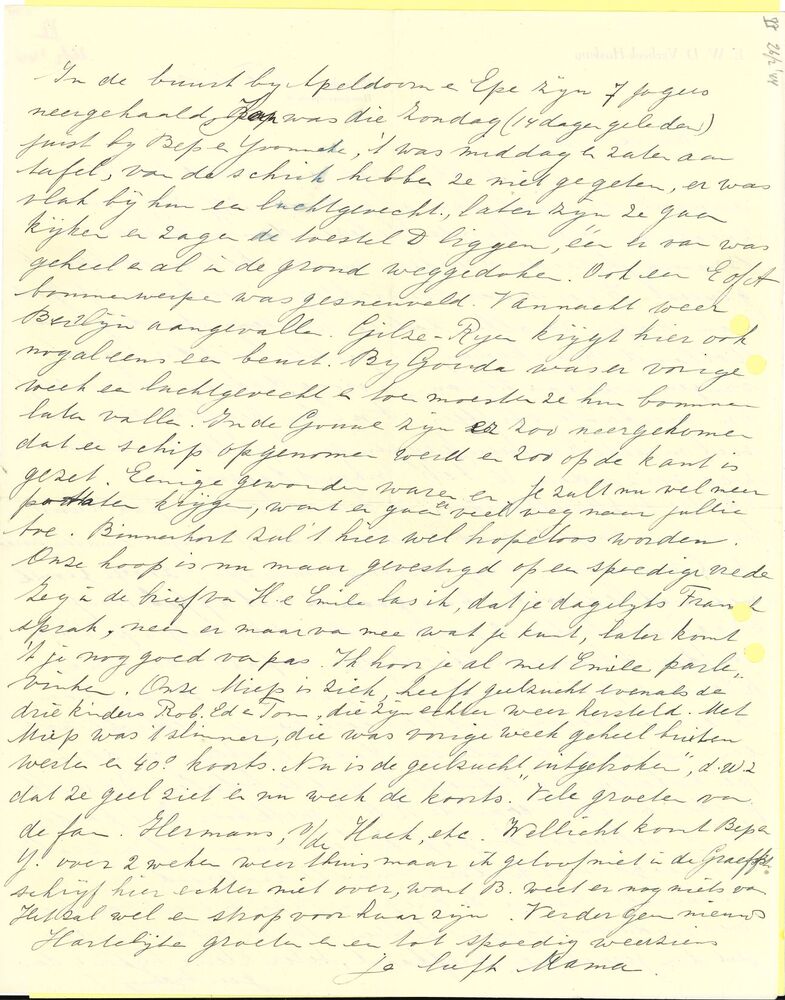 VI 24/2 '44
In de buurt bij Apeldoorn en Epe zijn 7 jagers
neergehaald, Jaap was die Zondag (14 dagen geleden)
juist bij Bep en Yvonneke, 't was middag en zaten aan
tafel, van de schrik hebben ze niet gegeten, er was
vlak bij hun een luchtgevecht, later zijn ze gaan
kijken en zagen de toestel D liggen, één er van was
geheel en al in de grond weggedoken. Ook een E of A
bommenwerper was gesneuveld. Vannacht weer
Berlijn aangevallen. Gilze-Rijen krijgt hier ook
nogal eens een beurt. Bij Gouda was er vorige
week een luchtgevecht en toen moesten ze hun bommen
laten vallen. In de Gouwe zijn er zoo neergekomen
dat een schip opgenomen werd en zoo op de kant is
gezet. Eenige gewonden waren er. Je zult nu wel meer
praten krijgen, want er gaan er veel weg naar jullie
toe. Binnenkort zal 't hier wel hopeloos worden.
Onze hoop is nu maar gevestigd op een spoedige vrede
Zeg in de brief van H. e Emile las ik, dat je dagelijks Fransch
sprak, neem er maar van mee wat je kunt, later komt
't je nog goed van pas. Ik hoor je al met Emile parle-
vinken. Onze Miep is ziek, heeft geelzucht evenals de
drie kinders Rob, Ed en Tom, die zijn echter weer hersteld. Met
Miep was 't slimmer, die was vorige week geheel buiten
westen en 40° koorts. Nu is de geelzucht "uitgebroken", d.w.z
dat ze geel ziet en nu week de koorts. Vele groeten van
de fam. Hermans, v/de Hoek, etc. Wellicht komt Bep en
Y. over 2 weken weer thuis maar ik geloof niet in de Graeff
schrijf hier echter niet over, want B. weet er nog niets van
Het zal wel een strop voor haar zijn. Verder geen nieuws
Hartelijke groeten en en tot spoedig weerziens
Je liefh Mama.